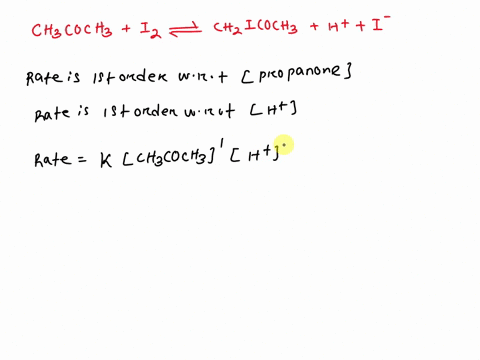 CH3COCH3 + I2 ⇌ CH2ICOCH3 + H+ + I-
Rate is 1st order w.r.t [propanone]
Rate is 1st order w.r.t [H+]
Rate = K [CH3COCH3]¹ [H+]